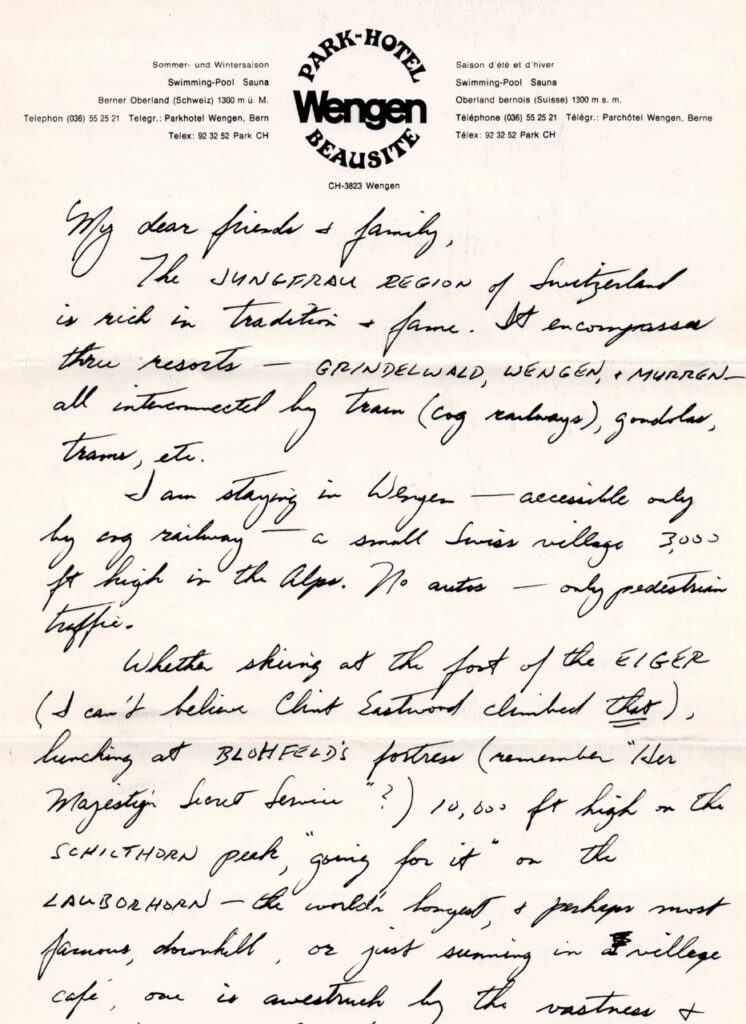 Sommer- und Wintersaison
Swimming-Pool Sauna
Berner Oberland (Schweiz) 1300 m ü. M.
Telephon (036) 55 25 21 Telegr.: Parkhotel Wengen, Bern
Telex: 92 32 52 Park CH
PARK-HOTEL
Wengen
BEAUSITE
CH-3823 Wengen
Saison d'été et d'hiver
Swimming-Pool Sauna
Oberland bernois (Suisse) 1300 m s. m.
Téléphone (036) 55 25 21 Télégr.: Parchôtel Wengen, Berne
Télex: 92 32 52 Park CH
My dear friends & family,
The JUNGFRAU REGION of Switzerland
is rich in tradition & fame. It encompasses
three resorts — GRINDELWALD, WENGEN, & MURREN—
all interconnected by train (cog railways), gondolas,
trams, etc.
I am staying in Wengen — accessible only
by cog railway — a small Swiss village 3,000
ft high in the Alps. No autos — only pedestrian
traffic.
Whether skiing at the foot of the EIGER
(I can't believe Clint Eastwood climbed that),
lunching at BLOHFELD'S fortress (remember "Her
Majesty's Secret Service"?) 10,000 ft high on the
SCHILTHORN peak, "going for it" on the
LAUBORHORN — the world's longest, & perhaps most
famous, downhill, or just sunning in a village
café, one is awestruck by the vastness &